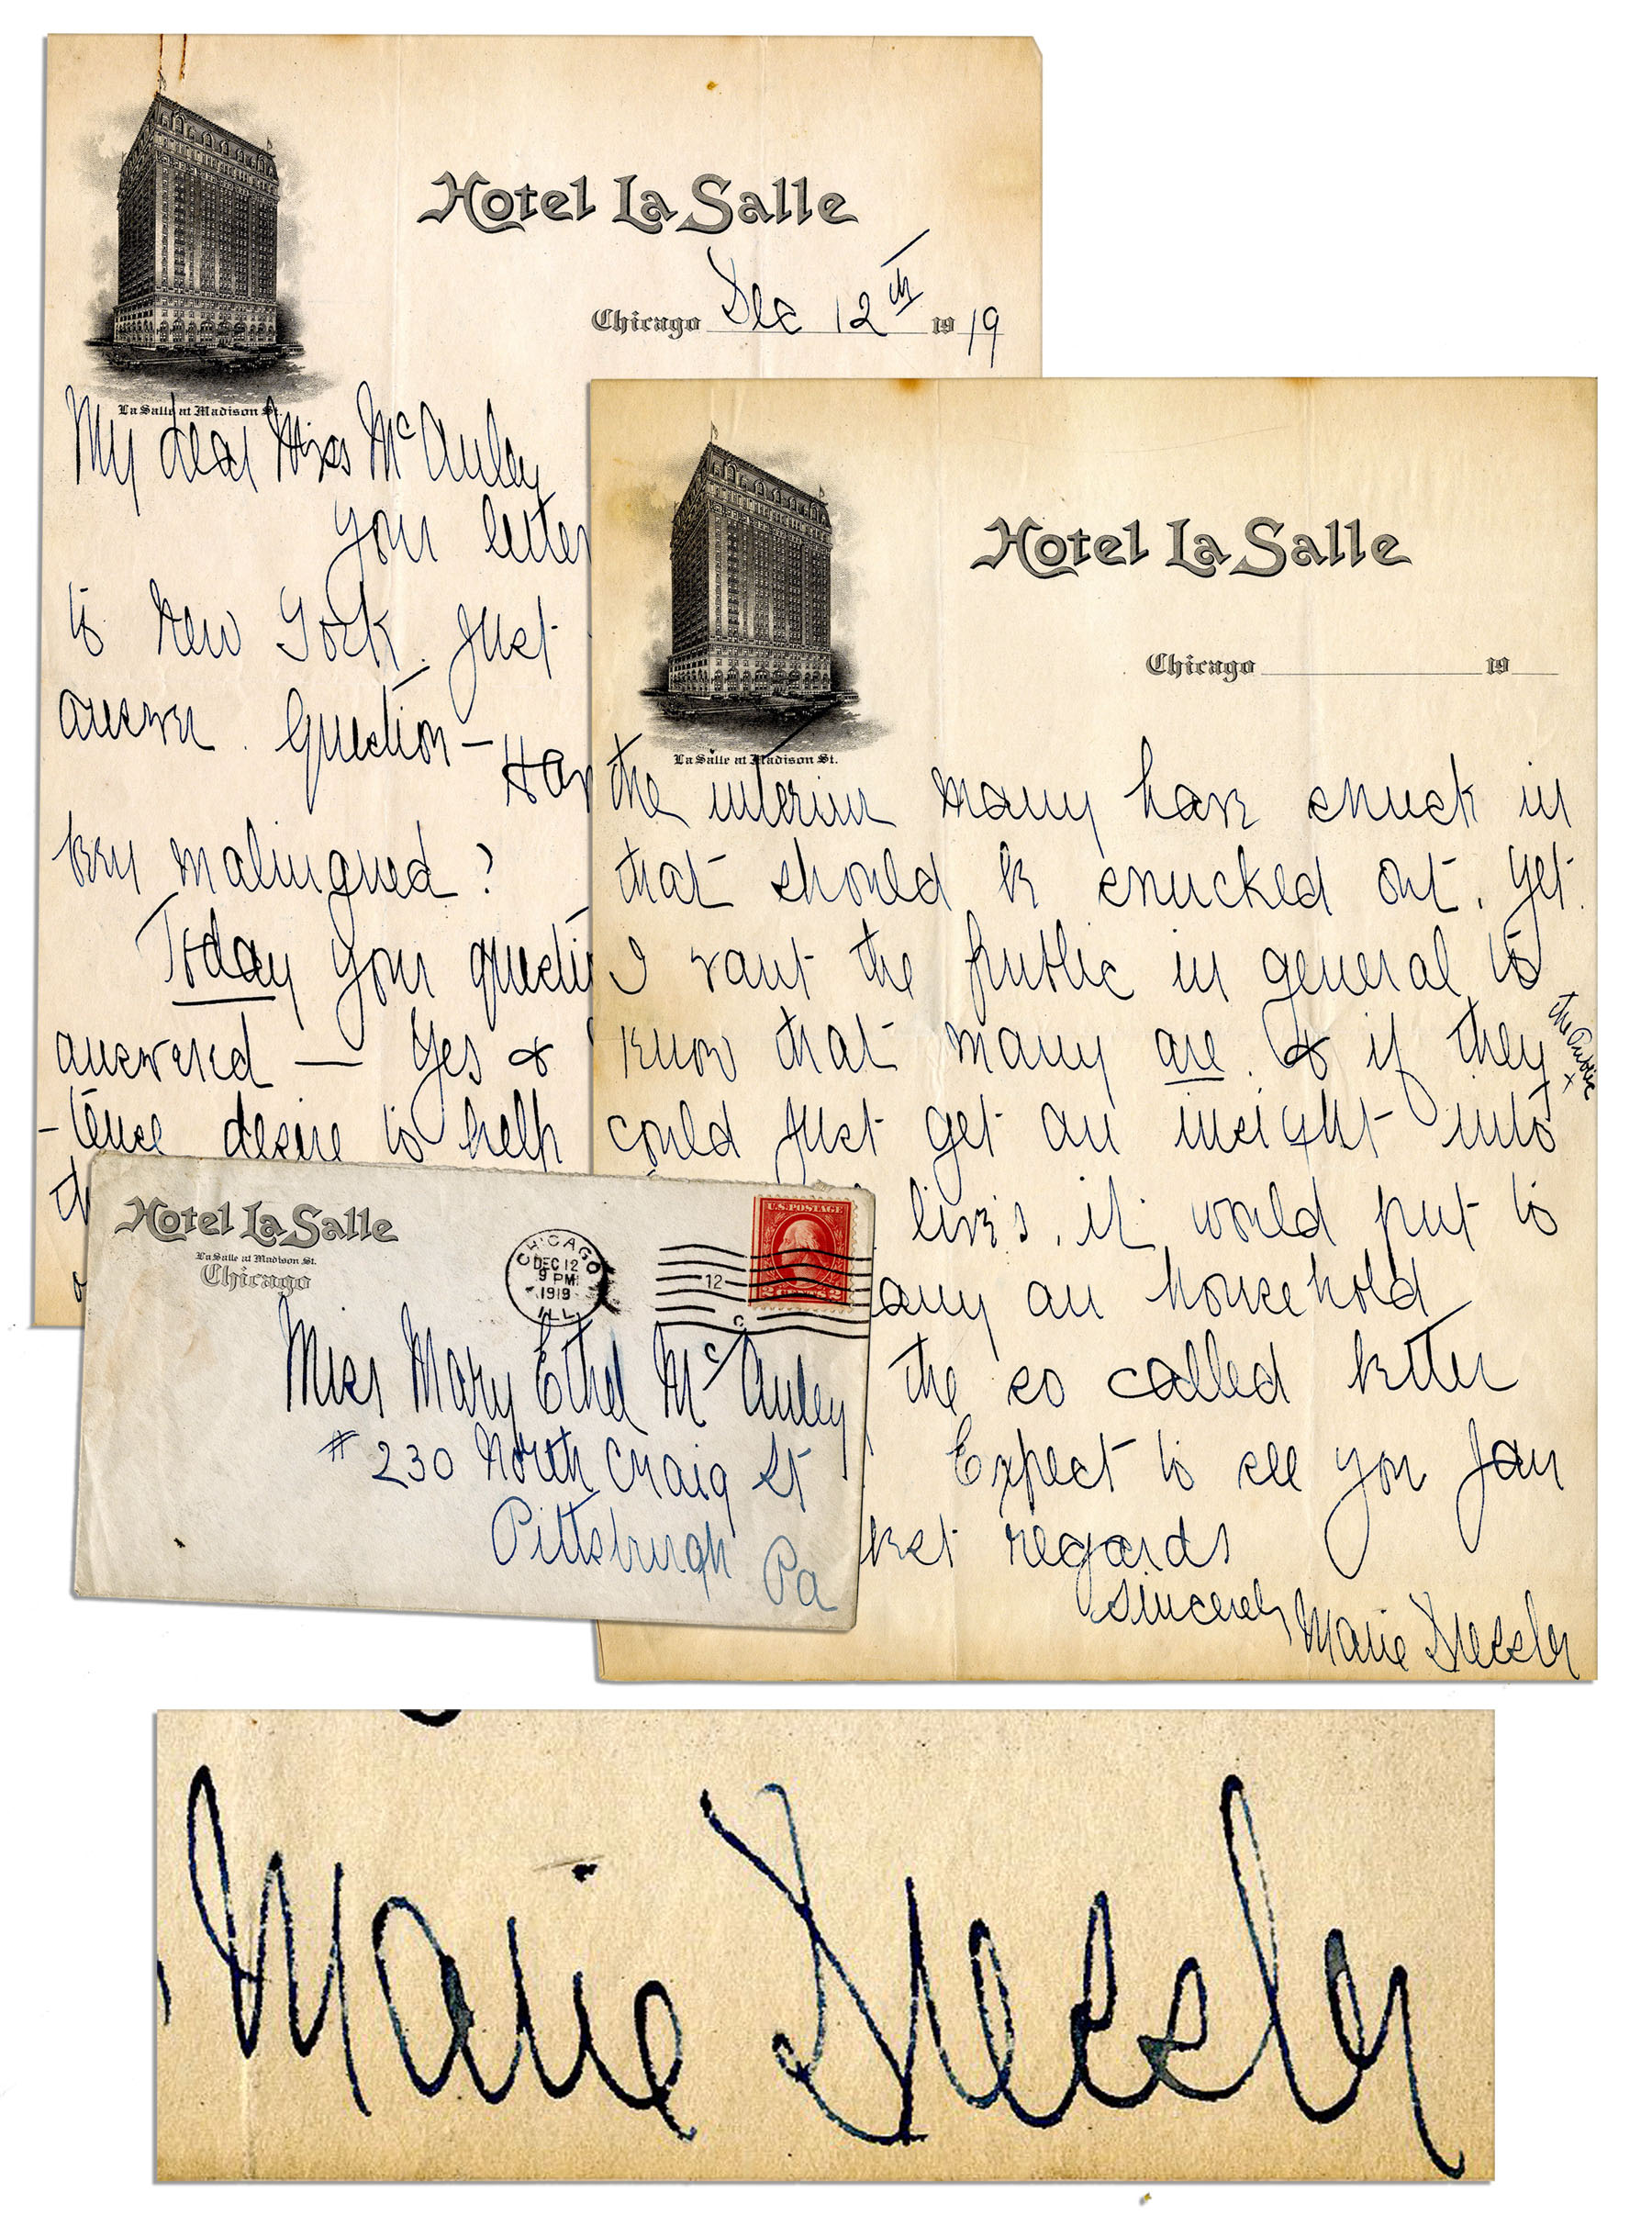 Hotel La Salle
Chicago Dec 12th 1919
La Salle at Madison St.
My dear Miss McAuley
your letter
to New York. Just
answer. Question -
been maligned?
Today your
answered — Yes &
-tense desire to help
Hotel La Salle
Chicago 19
La Salle at Madison St.
the interim many have snuck in
that should be snucked out. yet
I want the public in general to
know that many are. & if they
the Public
x
could just get an insight into
lives, it would put to
an household
the so called better
Expect to see you Jan
best regards
Sincerely Marie Dressler
Hotel La Salle
La Salle at Madison St.
Chicago
CHICAGO
DEC 12
9 PM
1919
ILL.
12
C
U.S. POSTAGE
2 CENTS 2
Miss Mary Ethel McAuley
# 230 North Craig St
Pittsburgh Pa
Marie Dressler